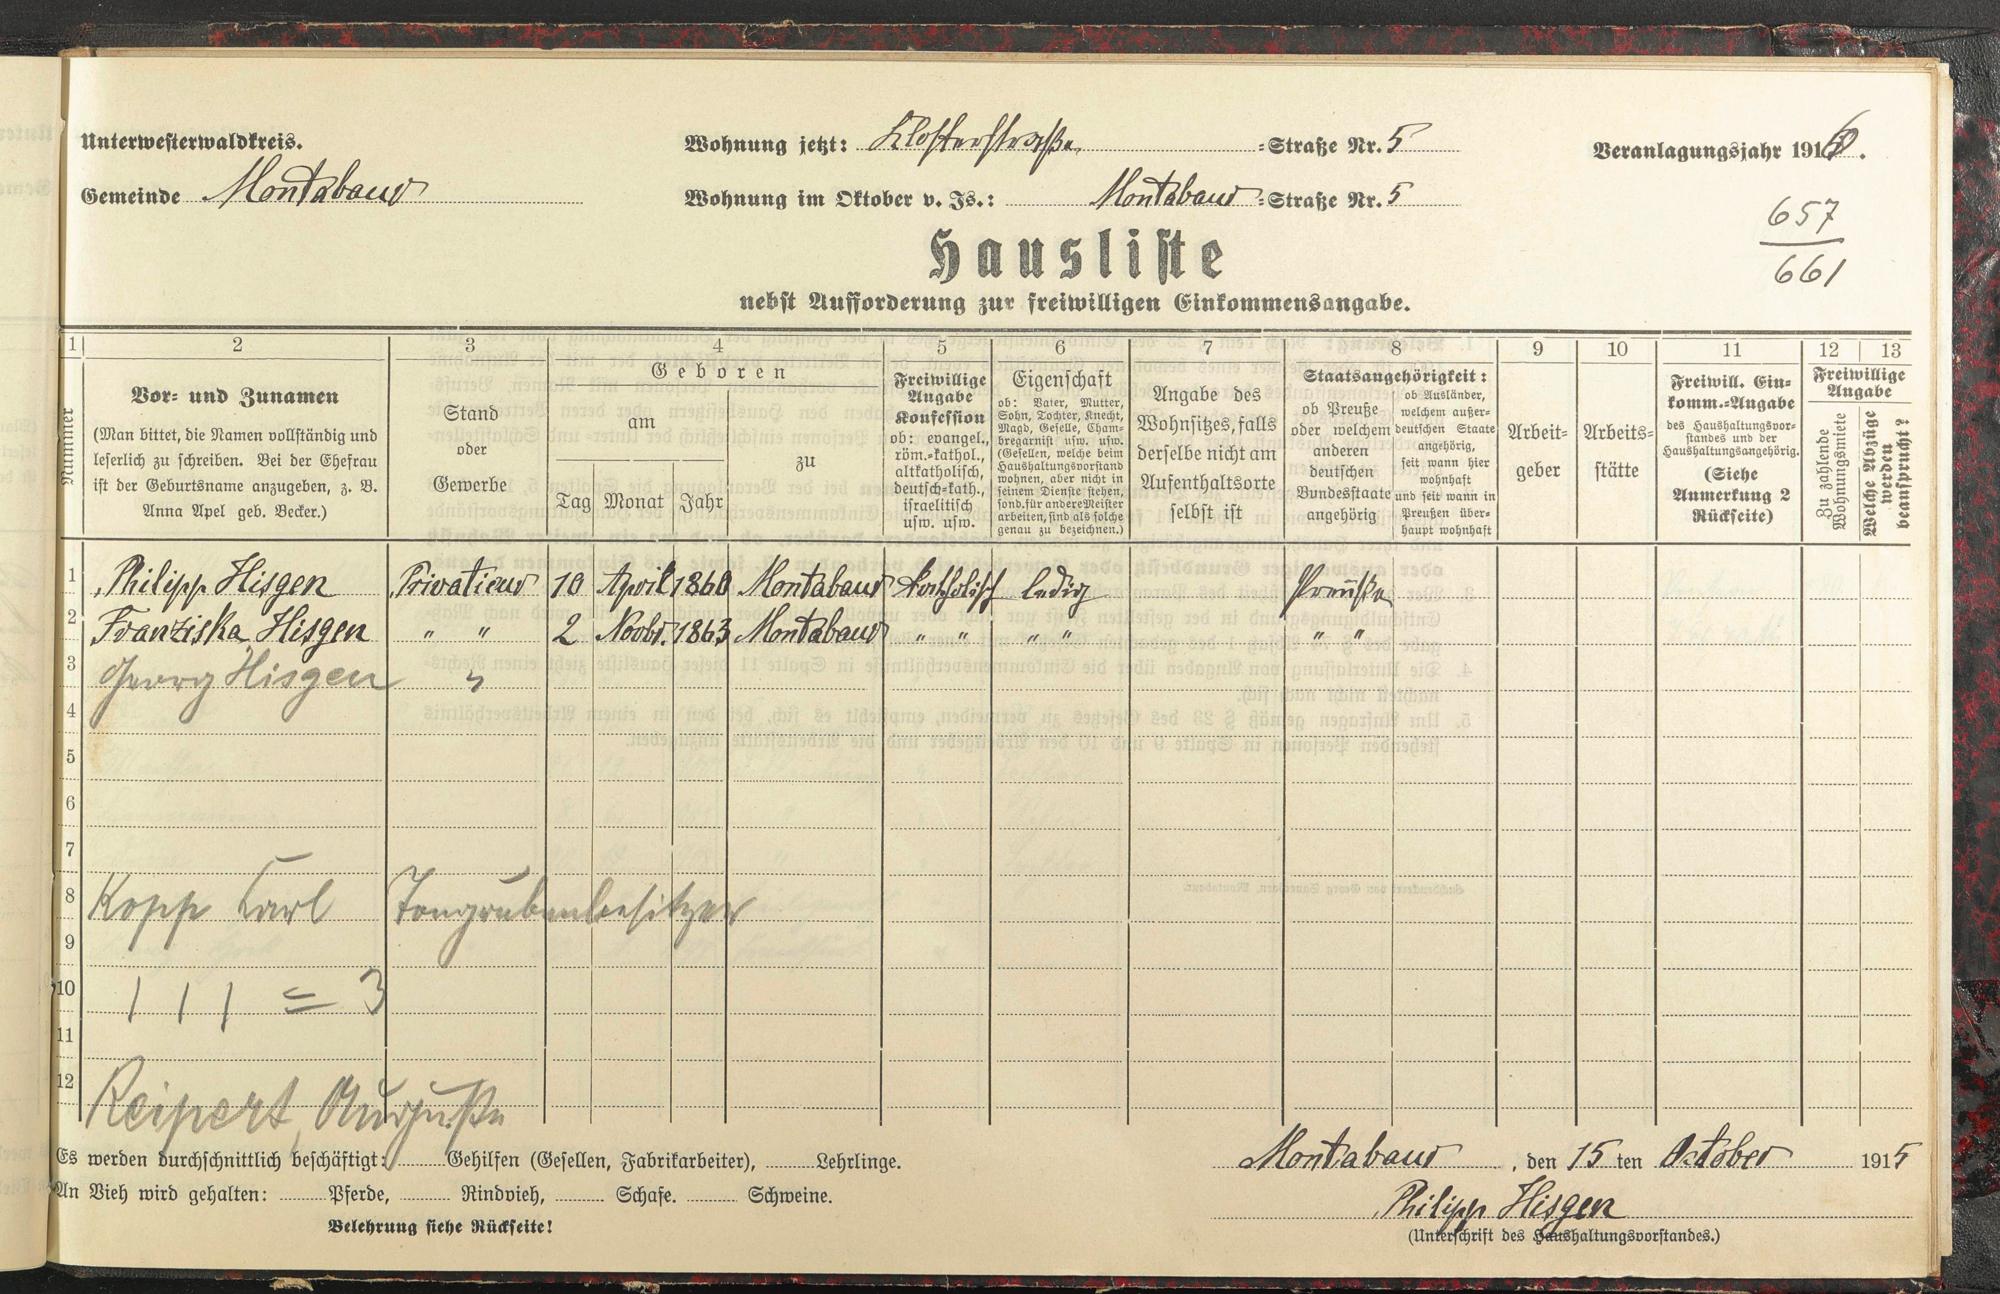 Unterwesterwaldkreis.
Gemeinde Montabaur
Wohnung jetzt: Klosterstraße -Straße Nr. 5
Wohnung im Oktober v. Js.: Montabaur -Straße Nr. 5
Veranlagungsjahr 1916.
657
661
Hausliste
nebst Aufforderung zur freiwilligen Einkommensangabe.
1 2 3 4 5 6 7 8 9 10 11 12 13
Nummer
Vor- und Zunamen
(Man bittet, die Namen vollständig und
leserlich zu schreiben. Bei der Ehefrau
ist der Geburtsname anzugeben, z. B.
Anna Apel geb. Becker.)
Stand
oder
Gewerbe
Geboren
am
Tag Monat Jahr
zu
Freiwillige
Angabe
Konfession
ob: evangel.,
röm.-kathol.,
altkatholisch,
deutsch-kath.,
israelitisch
usw. usw.
Eigenschaft
ob: Vater, Mutter,
Sohn, Tochter, Knecht,
Magd, Geselle, Cham-
bregarnist usw. usw.
(Gesellen, welche beim
Haushaltungsvorstand
wohnen, aber nicht in
seinem Dienste stehen,
sond. für andere Meister
arbeiten, sind als solche
genau zu bezeichnen.)
Angabe des
Wohnsitzes, falls
derselbe nicht am
Aufenthaltsorte
selbst ist
Staatsangehörigkeit:
ob Preuße
oder welchem
anderen
deutschen
Bundesstaate
angehörig
ob Ausländer,
welchem außer-
deutschen Staate
angehörig,
seit wann hier
wohnhaft
und seit wann in
Preußen über-
haupt wohnhaft
Arbeit-
geber
Arbeits-
stätte
Freiwill. Ein-
komm.-Angabe
des Haushaltungsvor-
standes und der
Haushaltungsangehörig.
(Siehe
Anmerkung 2
Rückseite)
Freiwillige
Angabe
Zu zahlende
Wohnungsmiete
Welche Abzüge
werden
beansprucht?
1 Philipp Hisgen Privatieur 10 April 1860 Montabaur katholisch ledig Preuße
2 Franziska Hisgen " " 2 Novbr. 1863 Montabaur " " " " " "
3 Georg Hisgen "
4
5
6
7
8 Kopp Karl Tongrubenbesitzer
9
10 | | | = 3
11
12 Reipert, Auguste
Es werden durchschnittlich beschäftigt: Gehilfen (Gesellen, Fabrikarbeiter), Lehrlinge.
An Vieh wird gehalten: Pferde, Rindvieh, Schafe. Schweine.
Belehrung siehe Rückseite!
Montabaur, den 15 ten October 1915
Philipp Hisgen
(Unterschrift des Haushaltungsvorstandes.)